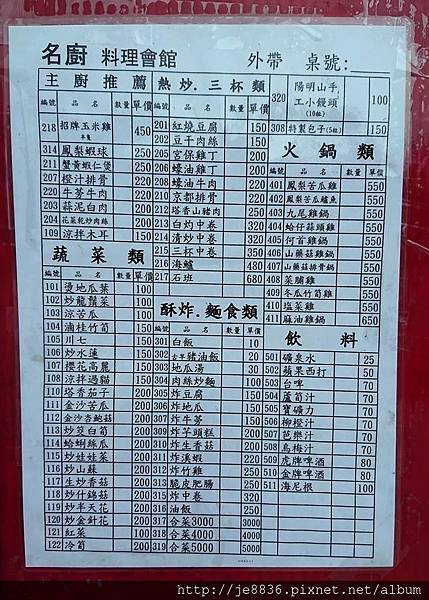 名廚 料理會館 外帶 桌號:
主廚推薦
編號 品名 數量 單價
218 招牌玉米雞 半隻 450
314 鳳梨蝦球 250
211 蟹黃蝦仁煲 250
207 橙汁排骨 200
220 牛蒡牛肉 200
203 蒜泥白肉 200
204 花菜乾炒肉絲 200
109 涼拌木耳 150
蔬菜類
編號 品名 數量 單價
101 燙地瓜葉 100
102 炒龍鬚菜 100
103 涼苦瓜 100
104 滷桂竹筍 150
105 川七 150
106 炒水蓮 150
107 櫻花高麗 150
108 涼拌過貓 150
110 塔香茄子 200
111 金沙苦瓜 200
112 金沙杏鮑菇 200
113 炒筊白筍 200
114 蛤蜊絲瓜 200
115 炒娃娃菜 200
116 炒山蘇 200
117 生炒香菇 200
118 炒什錦菇 200
119 炒半天花 200
120 炒金針花 200
121 紅菜 100
122 冷筍 200
熱炒.三杯類
編號 品名 數量 單價
201 紅燒豆腐 150
202 豆干肉絲 150
205 宮保雞丁 200
206 蠔油雞丁 200
208 蠔油牛肉 200
210 京都排骨 200
212 塔香山豬肉 200
213 白灼中卷 320
214 清炒中卷 320
215 三杯中卷 350
216 海鱸 480
217 石班 680
酥炸.麵食類
編號 品名 數量 單價
301 白飯 10
302 古早豬油飯 20
303 地瓜湯 30
304 肉絲炒麵 100
305 炸豆腐 150
306 炸地瓜 150
307 炸牛蒡 150
309 炸芋頭糕 200
310 炸生香菇 200
311 炸溪蝦 220
312 炸竹雞 250
313 脆皮肥腸 250
315 炸中卷 320
316 油飯 250
317 合菜3000 3000
318 合菜4000 4000
319 合菜5000 5000
320 陽明山手工小饅頭 (10粒) 100
308 特製包子(5粒) 150
火鍋類
編號 品名 數量 單價
401 鳳梨苦瓜雞 550
402 鳳梨苦瓜鱸魚 550
403 九尾雞鍋 550
404 蛤仔蒜頭雞 550
405 何首雞鍋 550
406 山藥菇雞鍋 550
407 山藥菇排骨鍋 550
408 菜脯雞 550
409 冬瓜竹筍雞 550
410 塩菜雞 550
411 麻油雞鍋 650
飲料
501 礦泉水 25
502 蘋果西打 50
503 台啤 70
504 蘆筍汁 70
505 寶礦力 70
506 柳橙汁 70
507 芭樂汁 70
508 烏梅汁 70
509 虎牌啤酒 80
510 金牌啤酒 80
511 海尼根 100
http://je8836.pixnet.net/album